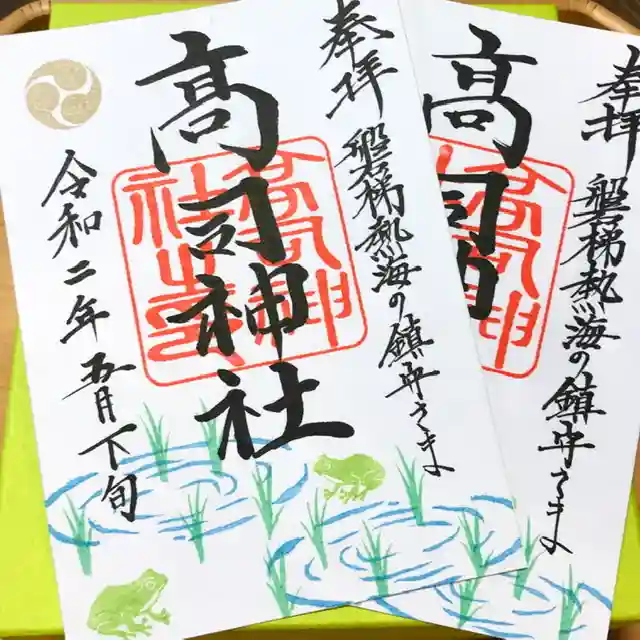 奉拝
磐梯熱海の鎮守さま
高司神社
高司神
社之印
令和二年
五月下旬
奉拝
磐梯熱海の鎮守さま
高司